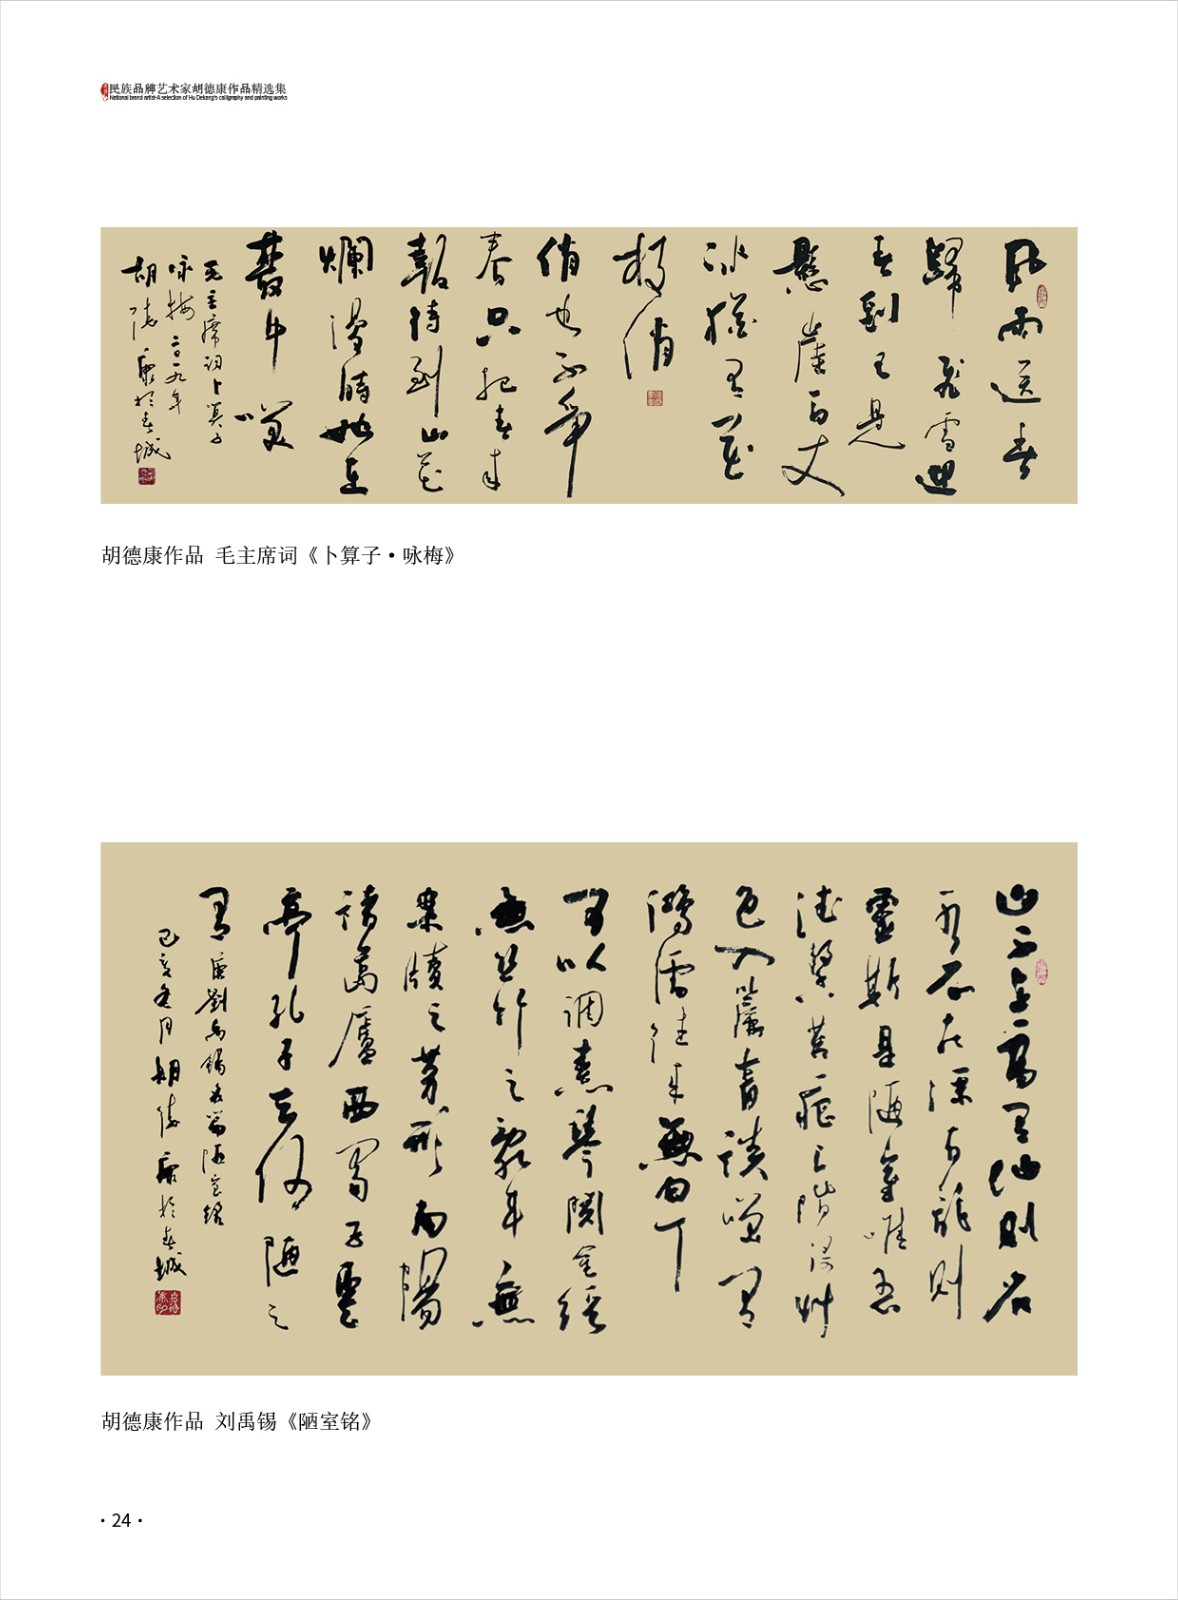 民族品牌艺术家胡德康作品精选集
National brand artist-A selection of Hu Dekang's calligraphy and painting works
風雨送春
歸飛雪迎
春到已是
懸崖百丈
冰猶有花
枝俏
俏也不爭
春只把春来
報待到山花
爛漫時她在
叢中笑
毛主席词卜算子
咏梅二〇一九年
胡德康於春城
胡德康作品 毛主席词《卜算子·咏梅》
山不在高有仙则名
水不在深有龍则
靈斯是陋室唯吾
德馨苔痕上階緑艸
色入簾青談笑有
鴻儒往来無白丁
可以調素琴閱金經
無丝竹之亂耳無
案牘之劳形南陽
諸葛廬西蜀子雲
亭孔子云何陋之
有 唐劉禹锡名篇陋室铭
己亥冬月胡德康於春城
胡德康作品 刘禹锡《陋室铭》
·24·